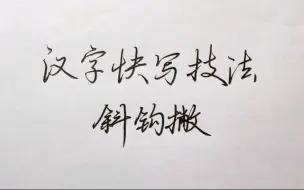 汉字快写技法
斜钩撇